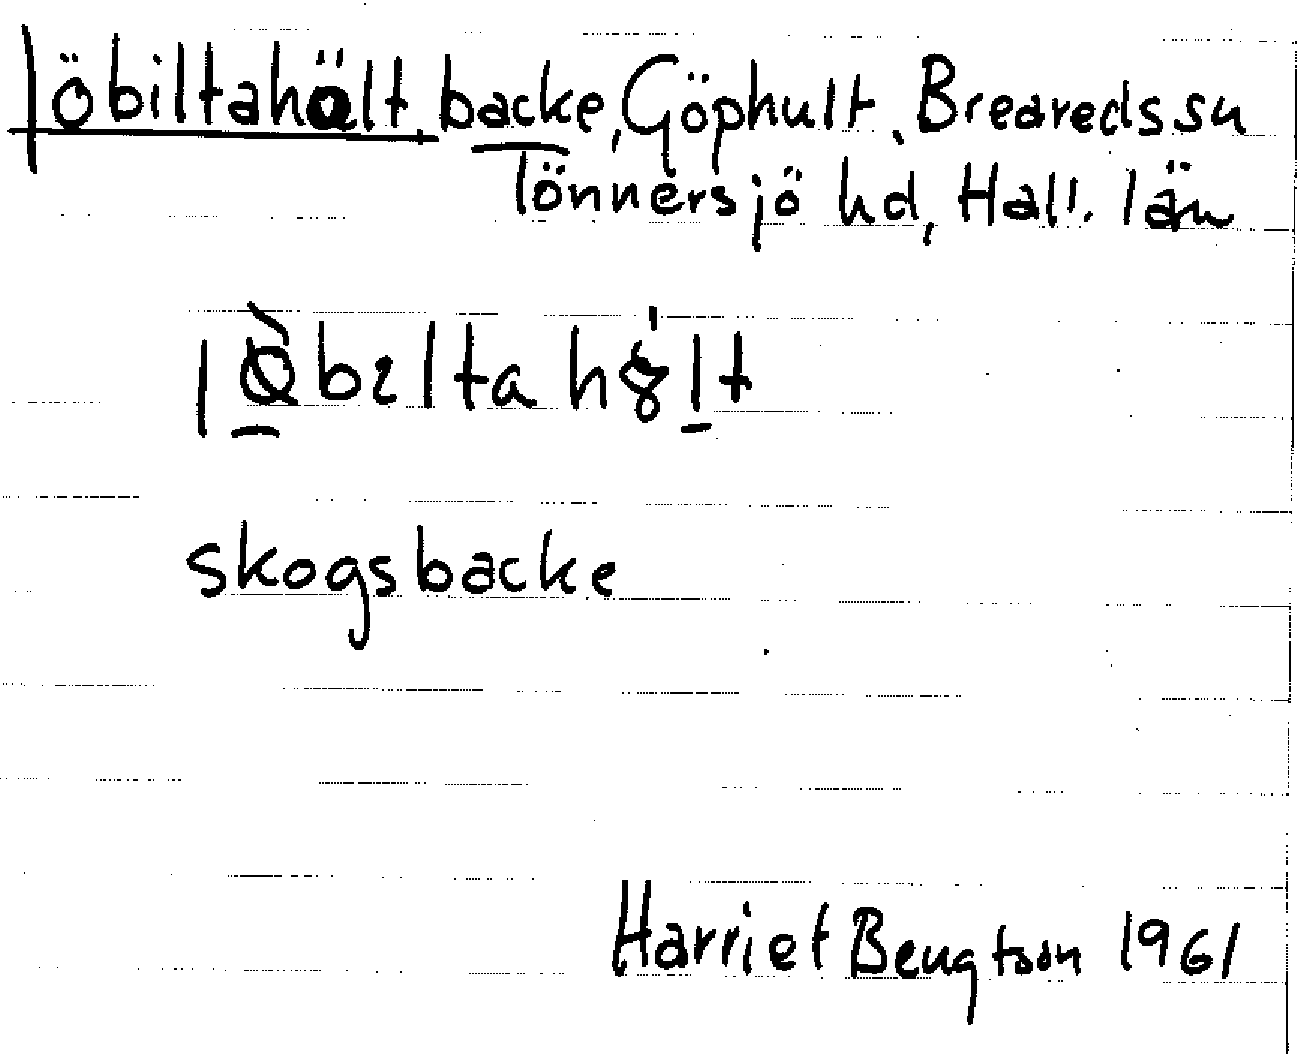 löbiltahölt backe, Göphult, Breareds sn
Tönnersjö hd, Hall. län
skogsbacke
Harriet Bengtson 1961